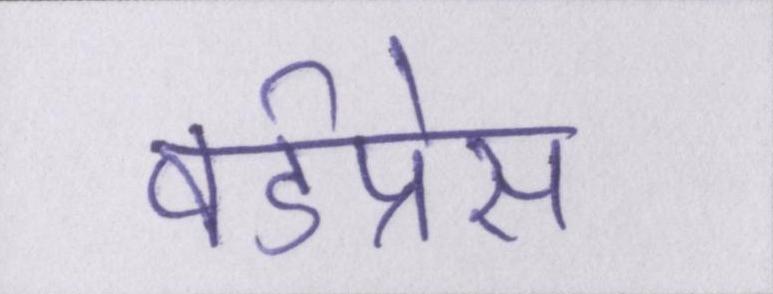 वर्डप्रेस